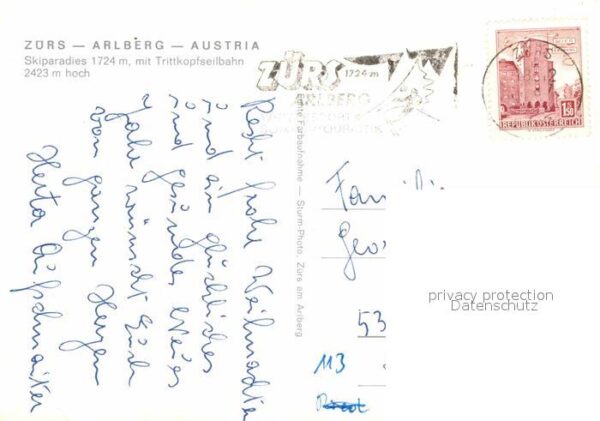 ZÜRS — ARLBERG — AUSTRIA
Skiparadies 1724 m, mit Trittkopfseilbahn
2423 m hoch
ZÜRS 1724 m
ARLBERG
REPUBLIK ÖSTERREICH
1.50
Recht frohe Weihnachten
und ein glückliches
und gesundes neues
Jahr wünscht Euch
von ganzem Herzen
Herta
Echte Farbaufnahme — Sturm-Photo, Zürs am Arlberg
Fam
Geo
53
113
privacy protection
Datenschutz